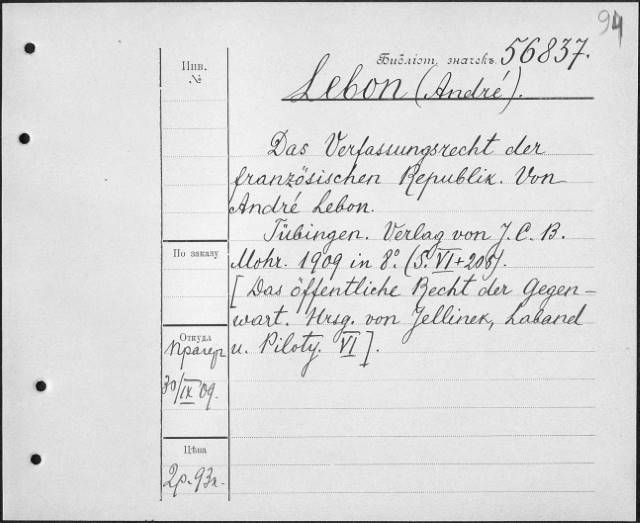 94
Библіот. значекъ 56837.
Lebon (André).
Инв.
№
Das Verfassungsrecht der
französischen Republik. Von
André Lebon.
Tübingen. Verlag von J. C. B.
Mohr. 1909 in 8°. (S. VI+205).
[Das öffentliche Recht der Gegen-
wart. Hrsg. von Jellinek, Laband
u. Piloty. VI].
По заказу
Откуда
Прагер
30/IX 09.
Цѣна
2р. 93к.